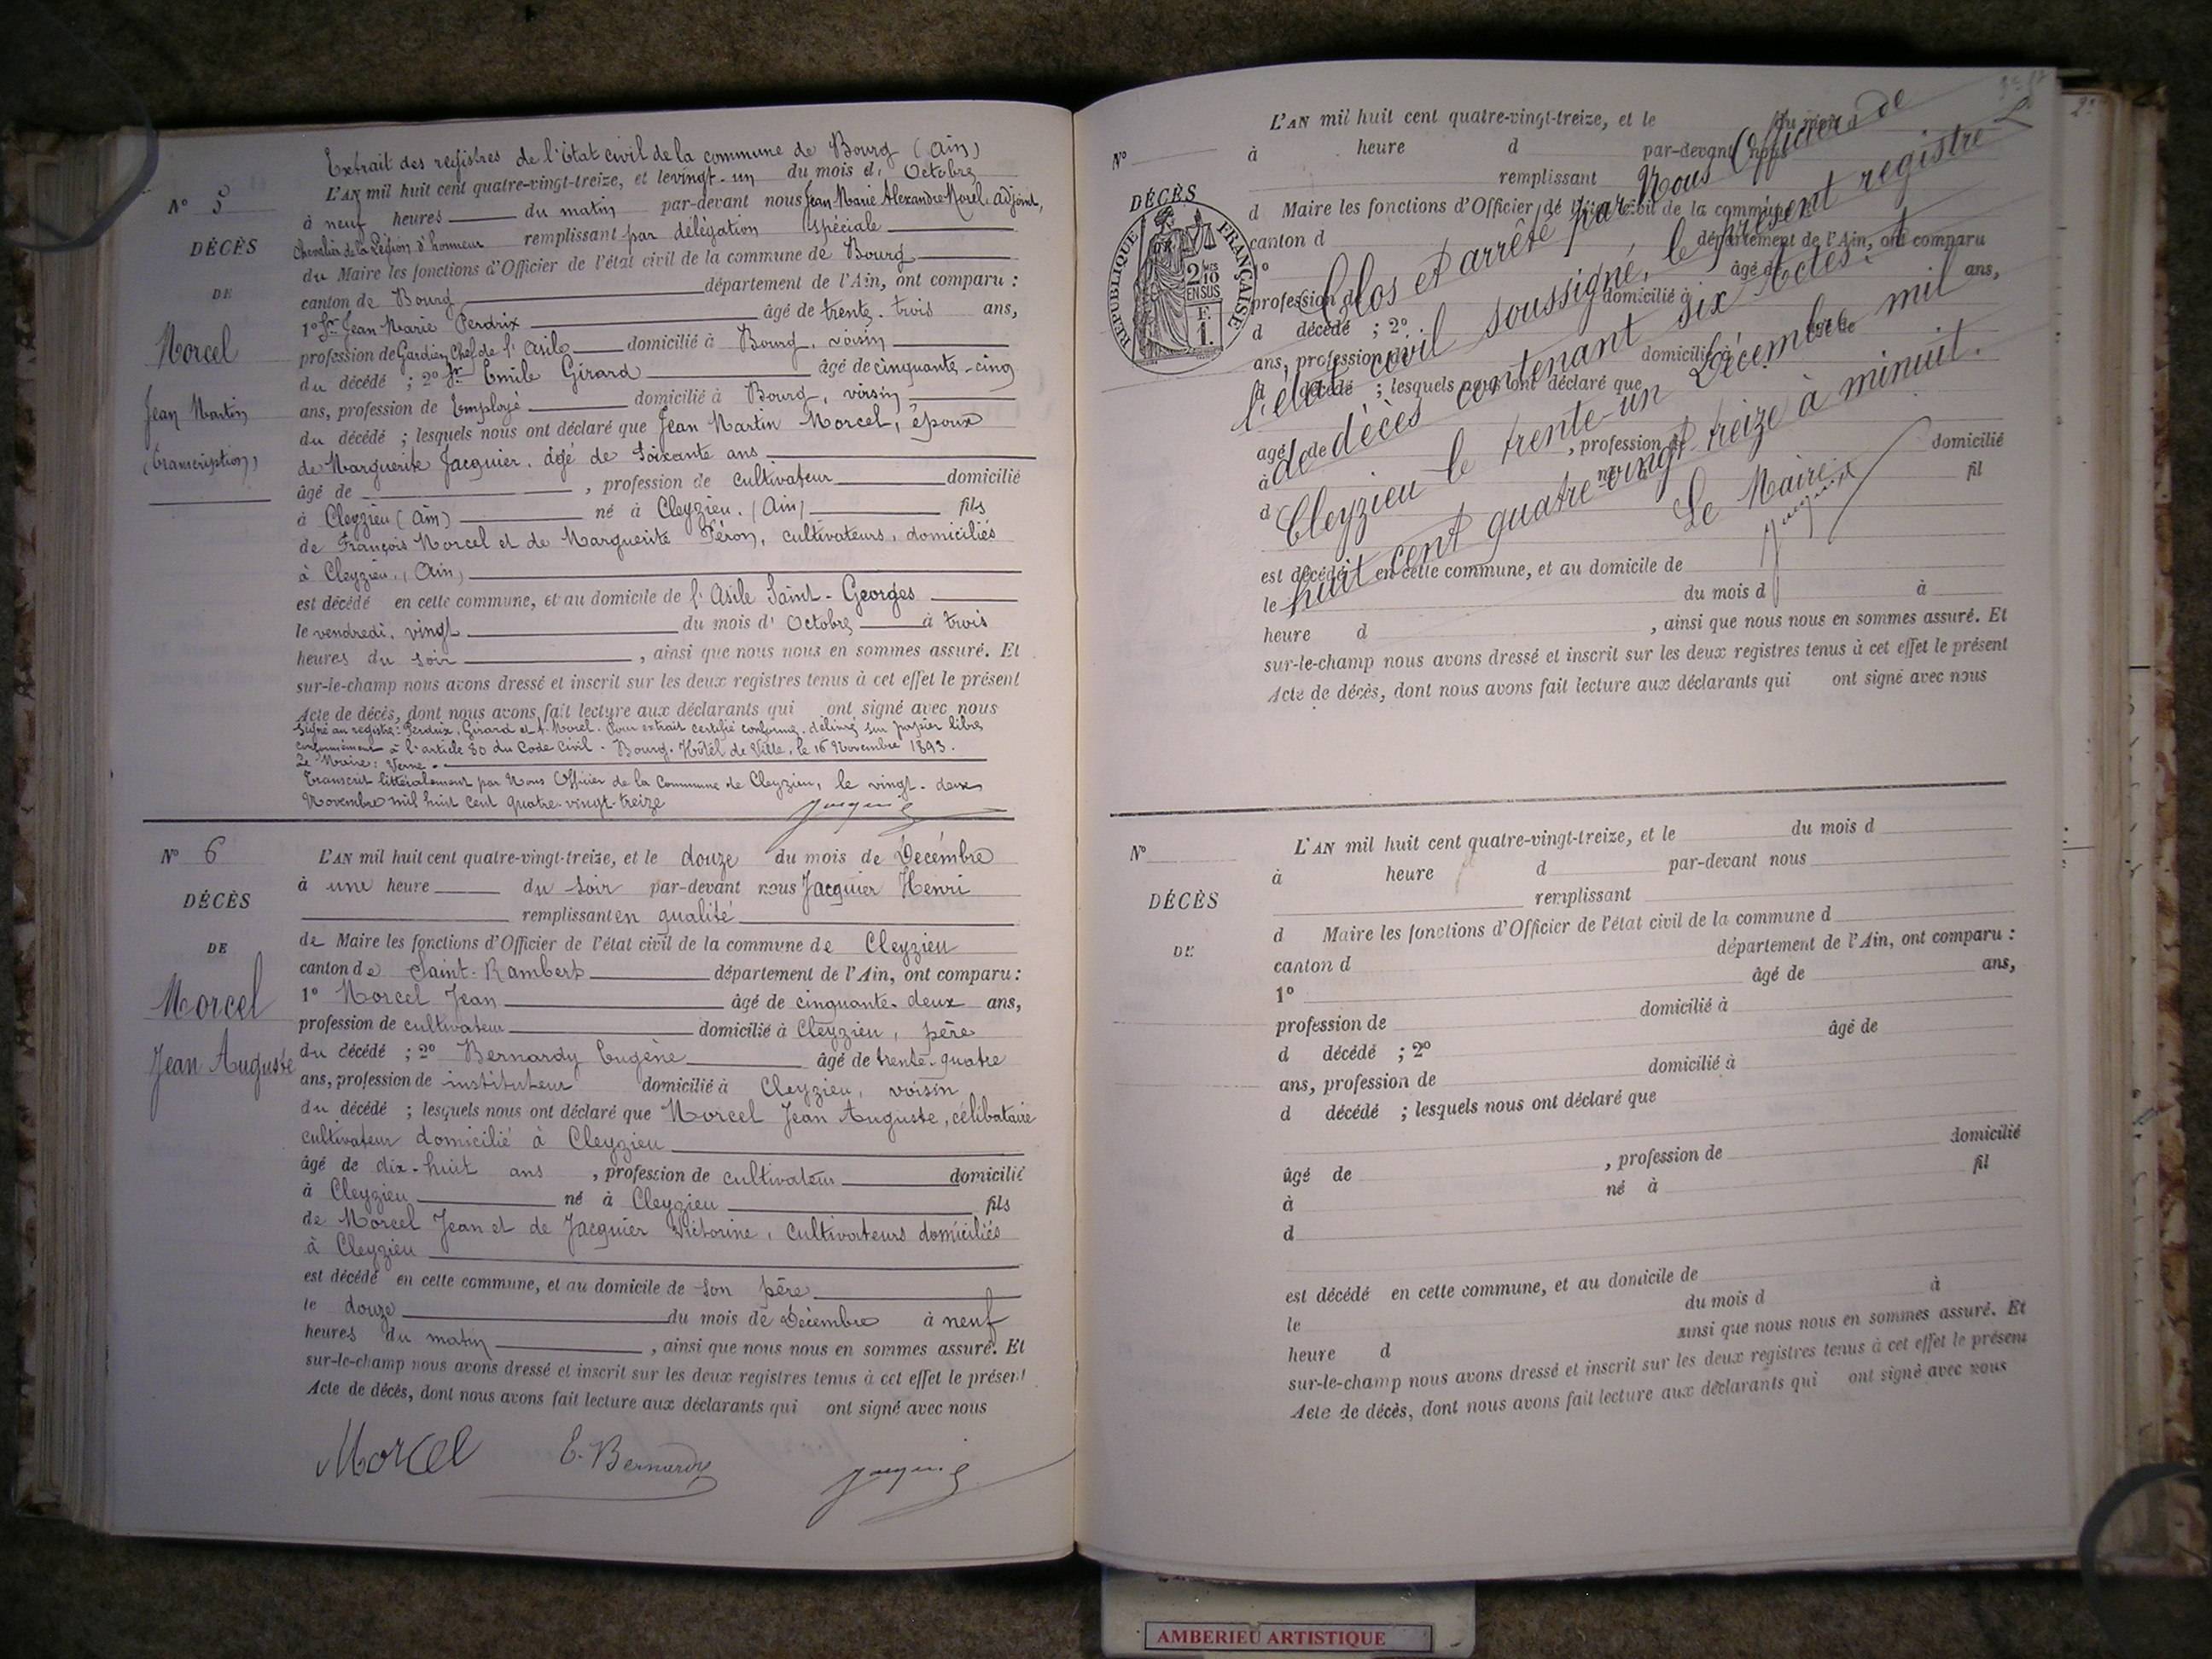 Extrait des registres de l'Etat civil de la commune de Bourg (Ain)
N° 5
L'AN mil huit cent quatre-vingt-treize, et le vingt-un du mois d'Octobre
à neuf heures du matin par-devant nous Jean Marie Alexandre Morel, adjoint,
DÉCÈS
Chevalier de la Légion d'honneur remplissant par délégation spéciale
du Maire les fonctions d'Officier de l'état civil de la commune de Bourg
DE
canton de Bourg département de l'Ain, ont comparu :
1° Sr Jean Marie Perdrix âgé de trente-trois ans,
Morcel
profession de Gardien Chef de l'Asile domicilié à Bourg, voisin
du décédé ; 2° Sr Emile Girard âgé de cinquante-cinq
Jean Martin
ans, profession de Employé domicilié à Bourg, voisin
du décédé ; lesquels nous ont déclaré que Jean Martin Morcel, époux
(transcription)
de Marguerite Jacquier, âgé de Soixante ans
âgé de , profession de cultivateur domicilié
à Cleyzieu (Ain) né à Cleyzieu, (Ain) fils
de François Morcel et de Marguerite Péron, cultivateurs, domiciliés
à Cleyzieu, (Ain)
est décédé en cette commune, et au domicile de l'Asile Saint-Georges
le vendredi, vingt du mois d'Octobre à trois
heures du soir , ainsi que nous nous en sommes assuré. Et
sur-le-champ nous avons dressé et inscrit sur les deux registres tenus à cet effet le présent
Acte de décès, dont nous avons fait lecture aux déclarants qui ont signé avec nous
Signé au registre : Perdrix, Girard et A. Morel. Pour extrait certifié conforme, délivré sur papier libre
conformément à l'article 80 du Code Civil. Bourg, Hôtel de Ville, le 16 Novembre 1893.
Le Maire : Verne.
Transcrit littéralement par Nous Officier de la Commune de Cleyzieu, le vingt-deux
Novembre mil huit cent quatre-vingt-treize
N° 6
L'AN mil huit cent quatre-vingt-treize, et le douze du mois de Décembre
à une heure du soir par-devant nous Jacquier Henri
DÉCÈS
remplissant en qualité
DE
de Maire les fonctions d'Officier de l'état civil de la commune de Cleyzieu
canton de Saint-Rambert département de l'Ain, ont comparu :
Morcel
1° Morcel Jean âgé de cinquante-deux ans,
profession de cultivateur domicilié à Cleyzieu, père
Jean Auguste
du décédé ; 2° Bernardy Eugène âgé de trente-quatre
ans, profession de instituteur domicilié à Cleyzieu, voisin
du décédé ; lesquels nous ont déclaré que Morcel Jean Auguste, célibataire
cultivateur domicilié à Cleyzieu
âgé de dix-huit ans , profession de cultivateur domicilié
à Cleyzieu né à Cleyzieu fils
de Morcel Jean et de Jacquier Victorine, cultivateurs domiciliés
à Cleyzieu
est décédé en cette commune, et au domicile de son père
le douze du mois de Décembre à neuf
heures du matin , ainsi que nous nous en sommes assuré. Et
sur-le-champ nous avons dressé et inscrit sur les deux registres tenus à cet effet le présent
Acte de décès, dont nous avons fait lecture aux déclarants qui ont signé avec nous
Morcel E. Bernardy
L'AN mil huit cent quatre-vingt-treize, et le du mois d
N°
à heure d par-devant nous
remplissant
DÉCÈS
d Maire les fonctions d'Officier de l'état civil de la commune d
canton d département de l'Ain, ont comparu
RÉPUBLIQUE FRANÇAISE
2/10 EN SUS
F. 1.
1° âgé d ans,
profession d domicilié à
d décédé ; 2° âgé de
ans, profession d domicilié à
d décédé ; lesquels nous ont déclaré que
âgé de , profession d domicilié
à né à fil
d
est décédé en cette commune, et au domicile de
le du mois d à
heure d , ainsi que nous nous en sommes assuré. Et
sur-le-champ nous avons dressé et inscrit sur les deux registres tenus à cet effet le présent
Acte de décès, dont nous avons fait lecture aux déclarants qui ont signé avec nous
Clos et arrêté par Nous Officier de
l'état civil soussigné, le présent registre
de décès contenant six Actes, à
Cleyzieu le trente-un Décembre mil
huit cent quatre-vingt treize à minuit.
Le Maire
N°
L'AN mil huit cent quatre-vingt-treize, et le du mois d
à heure d par-devant nous
DÉCÈS
remplissant
d Maire les fonctions d'Officier de l'état civil de la commune d
DE
canton d département de l'Ain, ont comparu :
1° âgé de ans,
profession de domicilié à
d décédé ; 2° âgé de
ans, profession de domicilié à
d décédé ; lesquels nous ont déclaré que
âgé de , profession de domicilié
à né à fil
d
est décédé en cette commune, et au domicile de
le du mois d à
heure d ainsi que nous nous en sommes assuré. Et
sur-le-champ nous avons dressé et inscrit sur les deux registres tenus à cet effet le présent
Acte de décès, dont nous avons fait lecture aux déclarants qui ont signé avec nous
AMBERIEU ARTISTIQUE